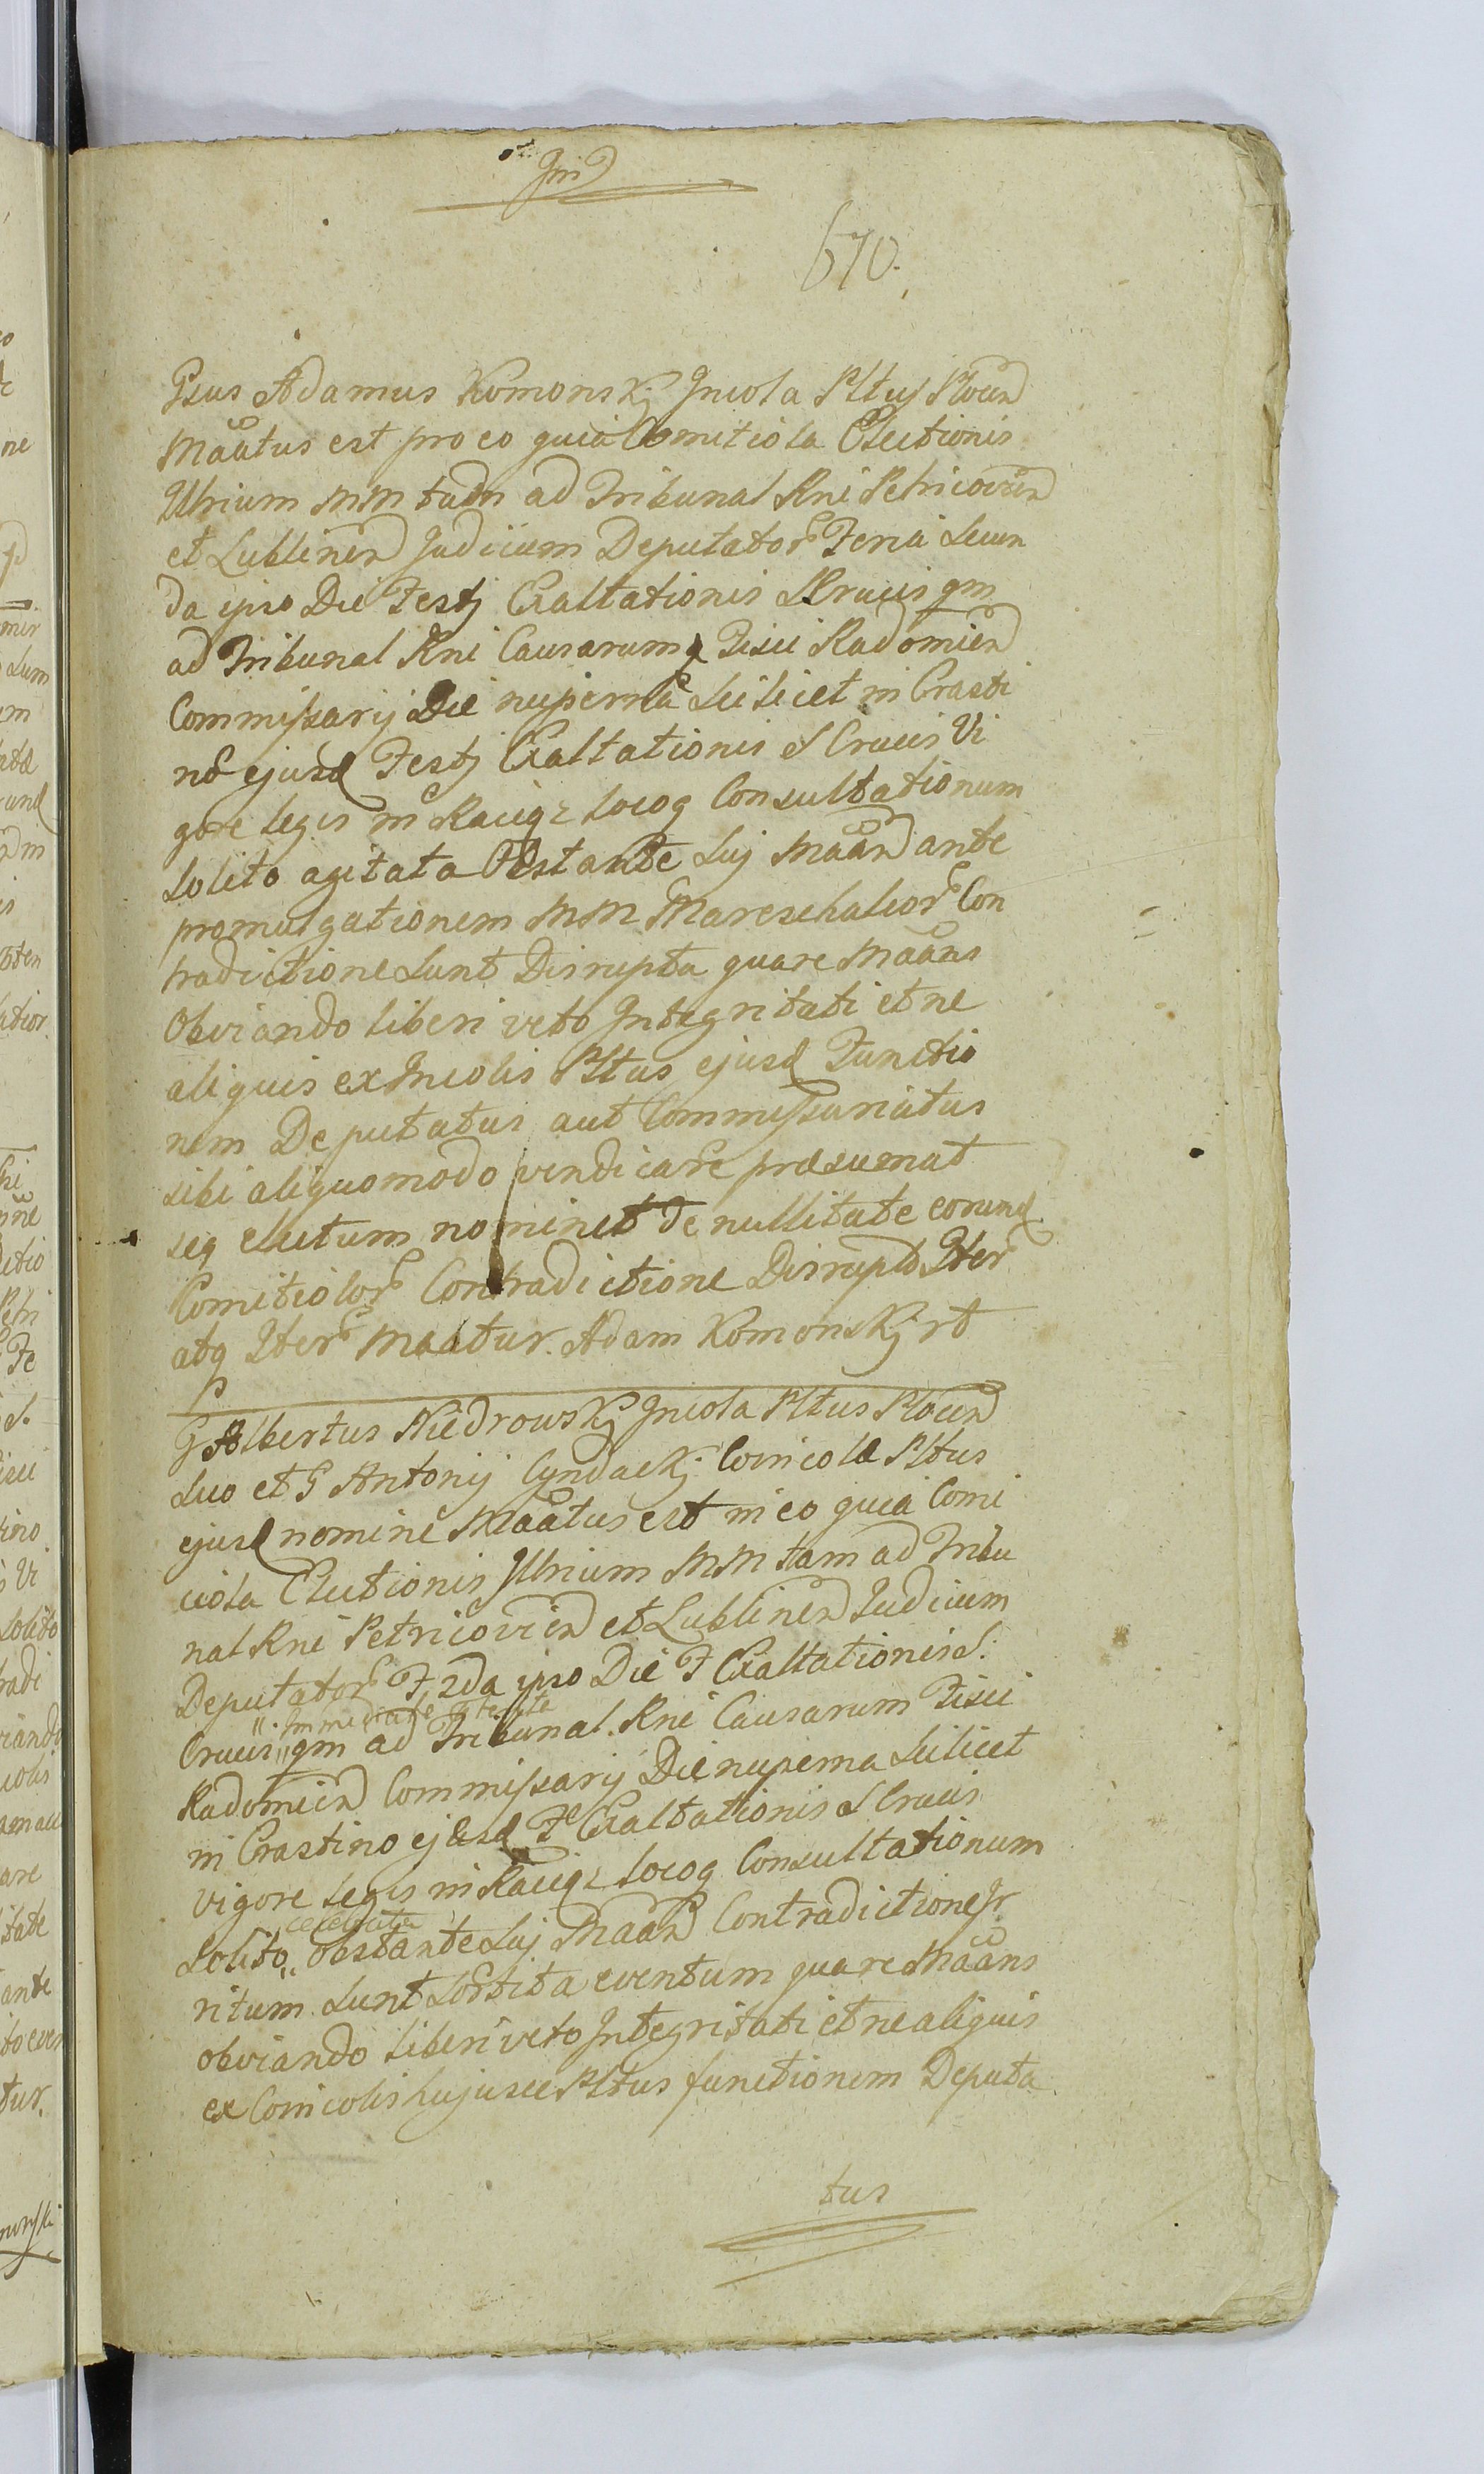 670.
Gsus Adamus Komonskj Incola Pltus Plocen
Maatus est pro eo quia Comitiola Electionis
Utrium MM tudn ad Tribunal Rni Petricovien
et Lublinen Judicium Deputator Feria Secun
da ipso Die Festj Exaltationis S Crucis qm
ad Tribunal Rni Causarum Fisci Radomien
Commissarij Die nuperna Scilicet in Crasti
no ejusd Festj Exaltationis S Crucis Vi
gore legis in Raciąz locoq Consultationum
Solito agitata Obstante Suj Maan ante
promulgationem MM Mareschalcor Con
tradictione Sunt Disrupta quare Maans
Obviando liberi veto Integritati et ne
aliquis ex Incolis Pltus ejusd Functio
nem Deputatus aut Commissariatus
sibi aliquomodo vindicare præsumat
seq electum nominet de nullitate eorund
Comitiolor Contradictione Disrupt Iter
atq Iter Maatur. Adam Komonskj rt
G Albertus Niedrowskj Incola Pltus Plocen
Suo et G Antonij Cyndackj Coincolæ Pltus
ejusd nomine Maatus est in eo quia Comi
ciola Electionis Utrium MM tam ad Tribu
nal Rni Petricovien et Lublinen Judicium
Deputator F 2da ipso Die F Exaltationis S.
" Immediate
Crucis " qm ad Tribunal Rni Causarum Fisci
Radomien Commissarij Die nuperna Scilicet
in Crastino ejusd F Exaltationis S Crucis
vigore legis in Raciąz locoq Consultationum
celebrata
Solito " obstante Suj Maan Contradictione Ir
ritum Sunt Sortita eventum quare Maans
obviando liberi veto Integritati et ne aliquis
ex Coincolis hujusce Pltus functionem Deputa
tus